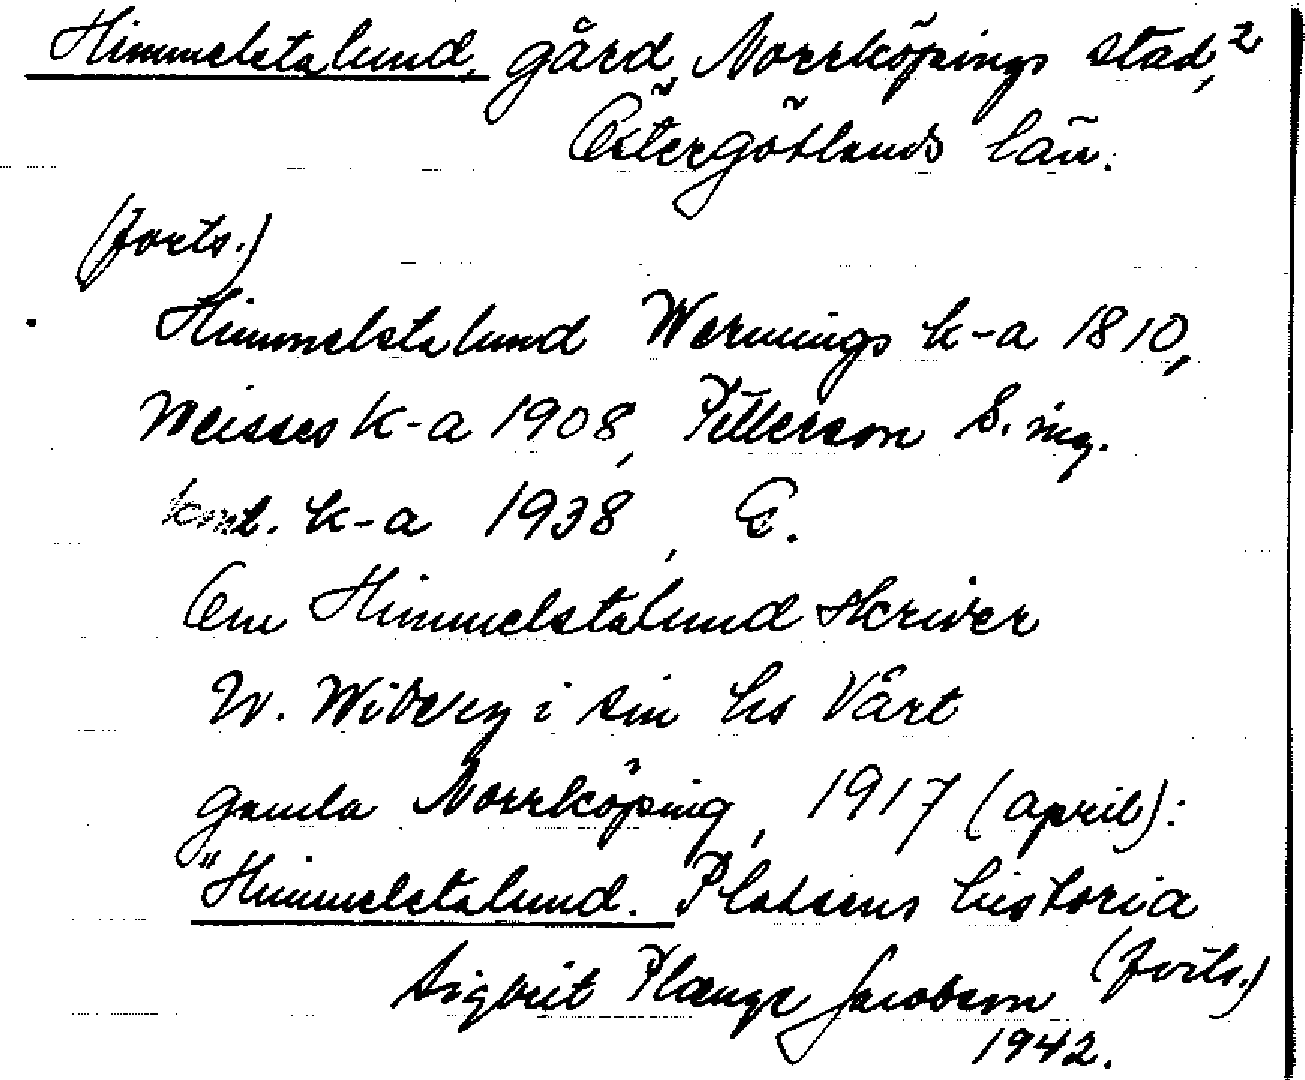 Himmelstalund, gård, Norrköpings stad, 2
Östergötlands län.
(forts.)
Himmelstalund Wernings k-a 1810,
Meisses k-a 1908, Petterson S. ing.
komb. k-a 1938, E.
Om Himmelstalund skriver
W. Wiberg i sin hs Vårt
gamla Norrköping, 1917 (april):
"Himmelstalund. Platsens historia
(forts.)
Sigbrit Plænge Jacobson
1942.